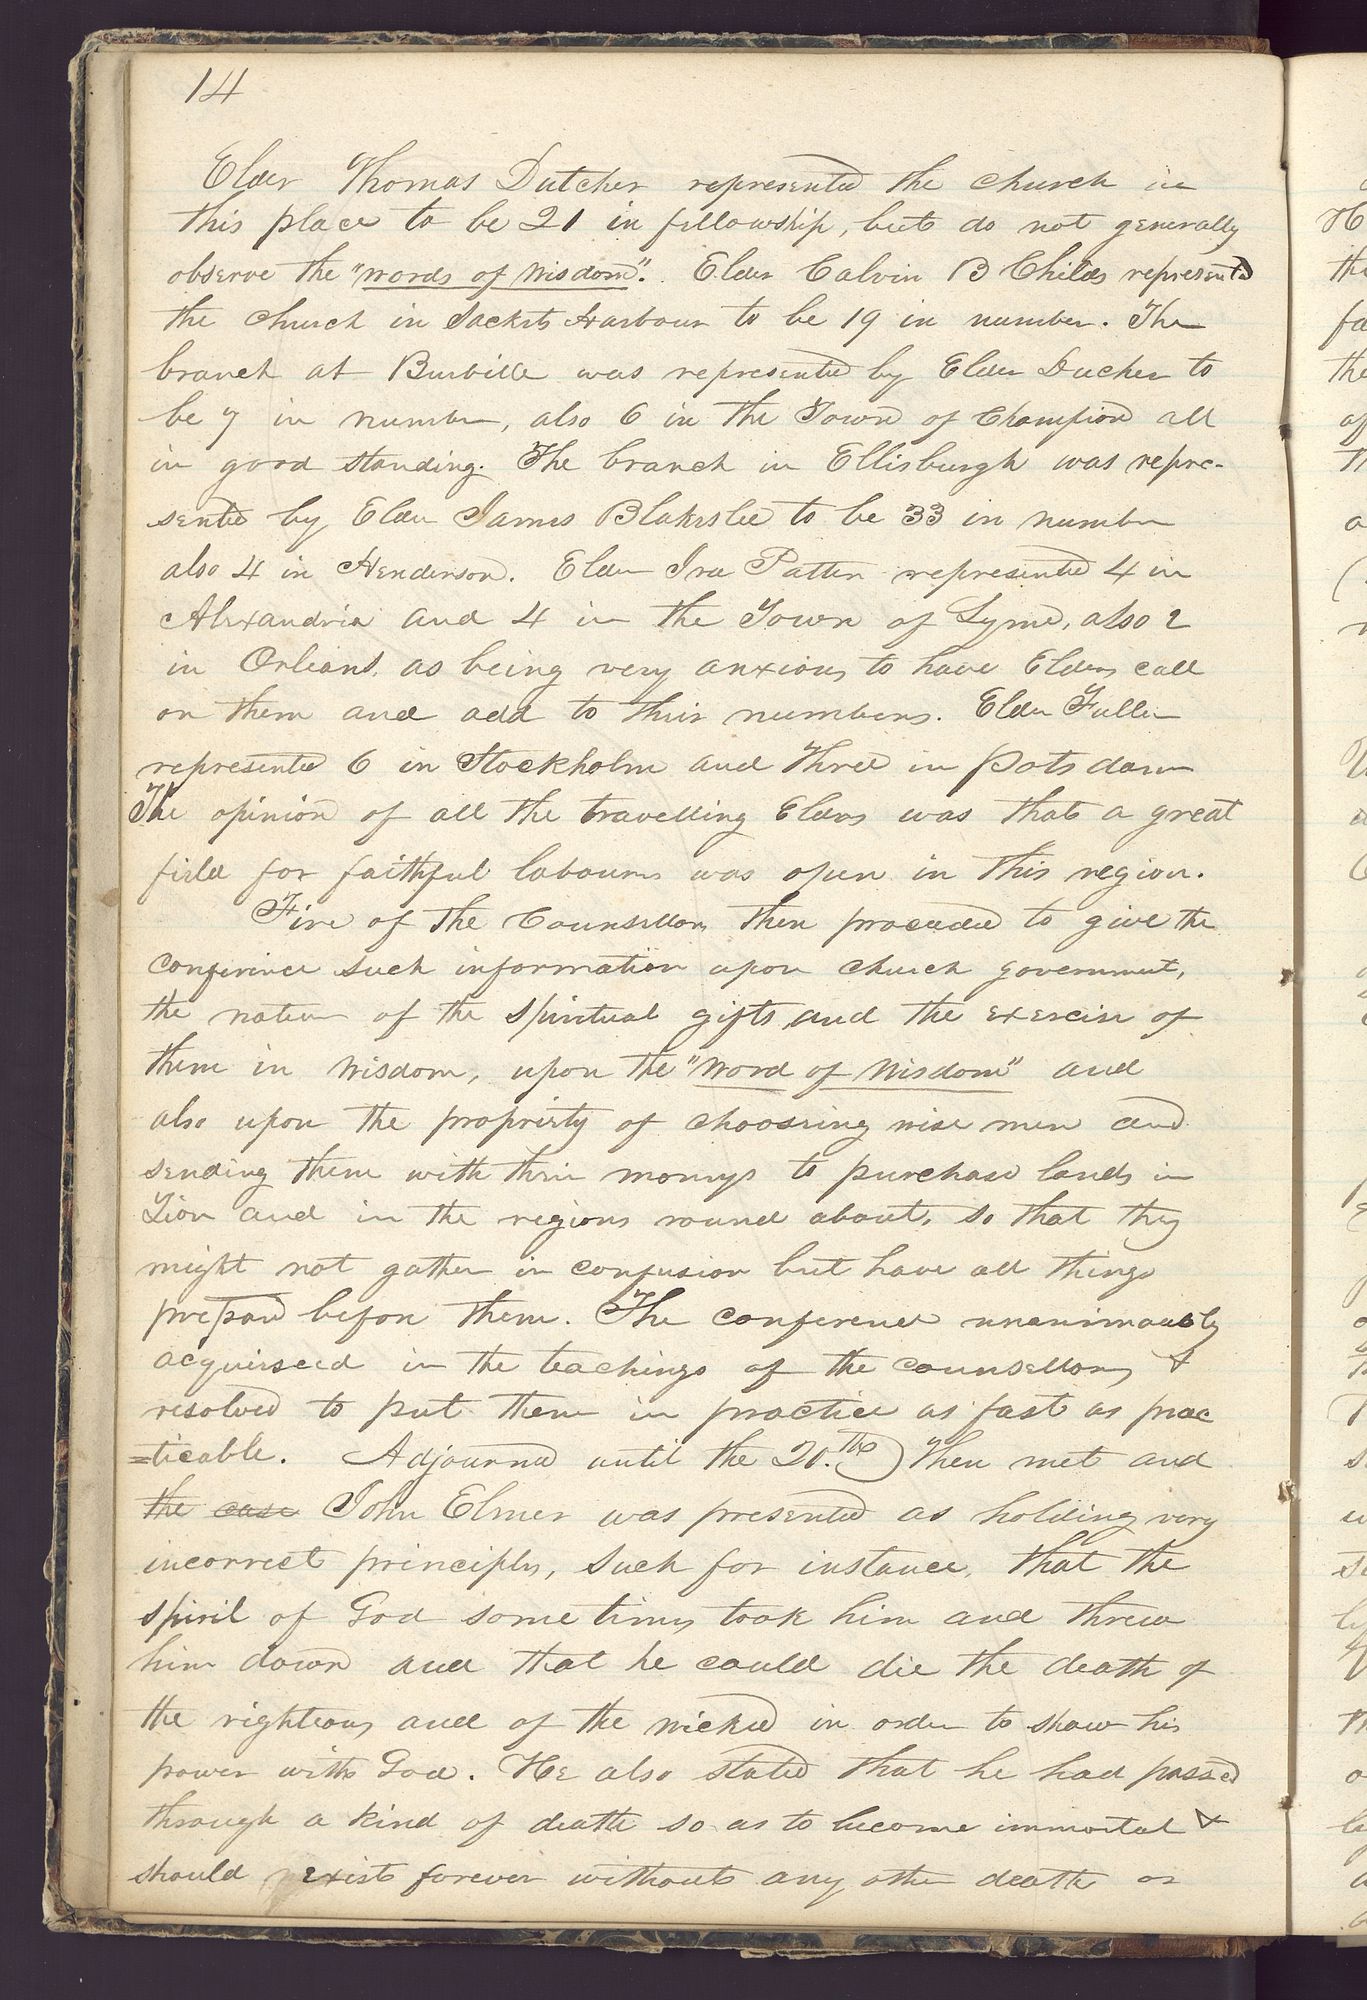 14
Elder Thomas Dutcher represented the church in
this place to be 21 in fellowship, but do not generally
observe the "words of wisdom". Elder Calvin B Childs represented
the church in Sackets Harbour to be 19 in number. The
branch at Burville was represented by Elder Ducher to
be 7 in number, also 6 in the Town of Champion all
in good standing. The branch in Ellisburgh was repre-
sented by Elder James Blakeslee to be 33 in number
also 4 in Henderson. Elder Ira Patten represented 4 in
Alexandria and 4 in the Town of Lyme, also 2
in Orleans, as being very anxious to have Elders call
on them and add to their numbers. Elder Fuller
represented 6 in Stockholm and three in Potsdam
The opinion of all the travelling Elders was that a great
field for faithful labourers was open in this region.
Five of the Counsellors then proceeded to give the
conference such information upon church government,
the nature of the spiritual gifts, and the exercise of
them in wisdom, upon the "word of wisdom" and
also upon the propriety of chooseing wise men and
sending them with their moneys to purchase lands in
Zion and in the regions round about, so that they
might not gather in confusion but have all things
prepared before them. The conference unanimously
acquiesced in the teachings of the counsellors &
resolved to put them in practice as fast as prac
=ticable. Adjourned until the 20.th) Then met and
the case John Elmer was presented as holding very
incorrect principles, such for instance, that the
spirit of God some times took him and threw
him down and that he could die the death of
the righteous and of the wicked in order to show his
power with God. He also stated that he had passed
through a kind of death so as to become immortal &
should exist forever without any other death or